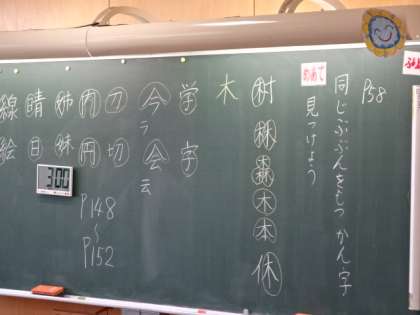 P58
めあて
同じぶぶんをもつかん字
見つけよう
村 株 森 木 本 休
木
学 字
今 ラ 会 云
刀 切
内 円
姉 妹
晴 日
線 絵
3:00
P148
〜
P152